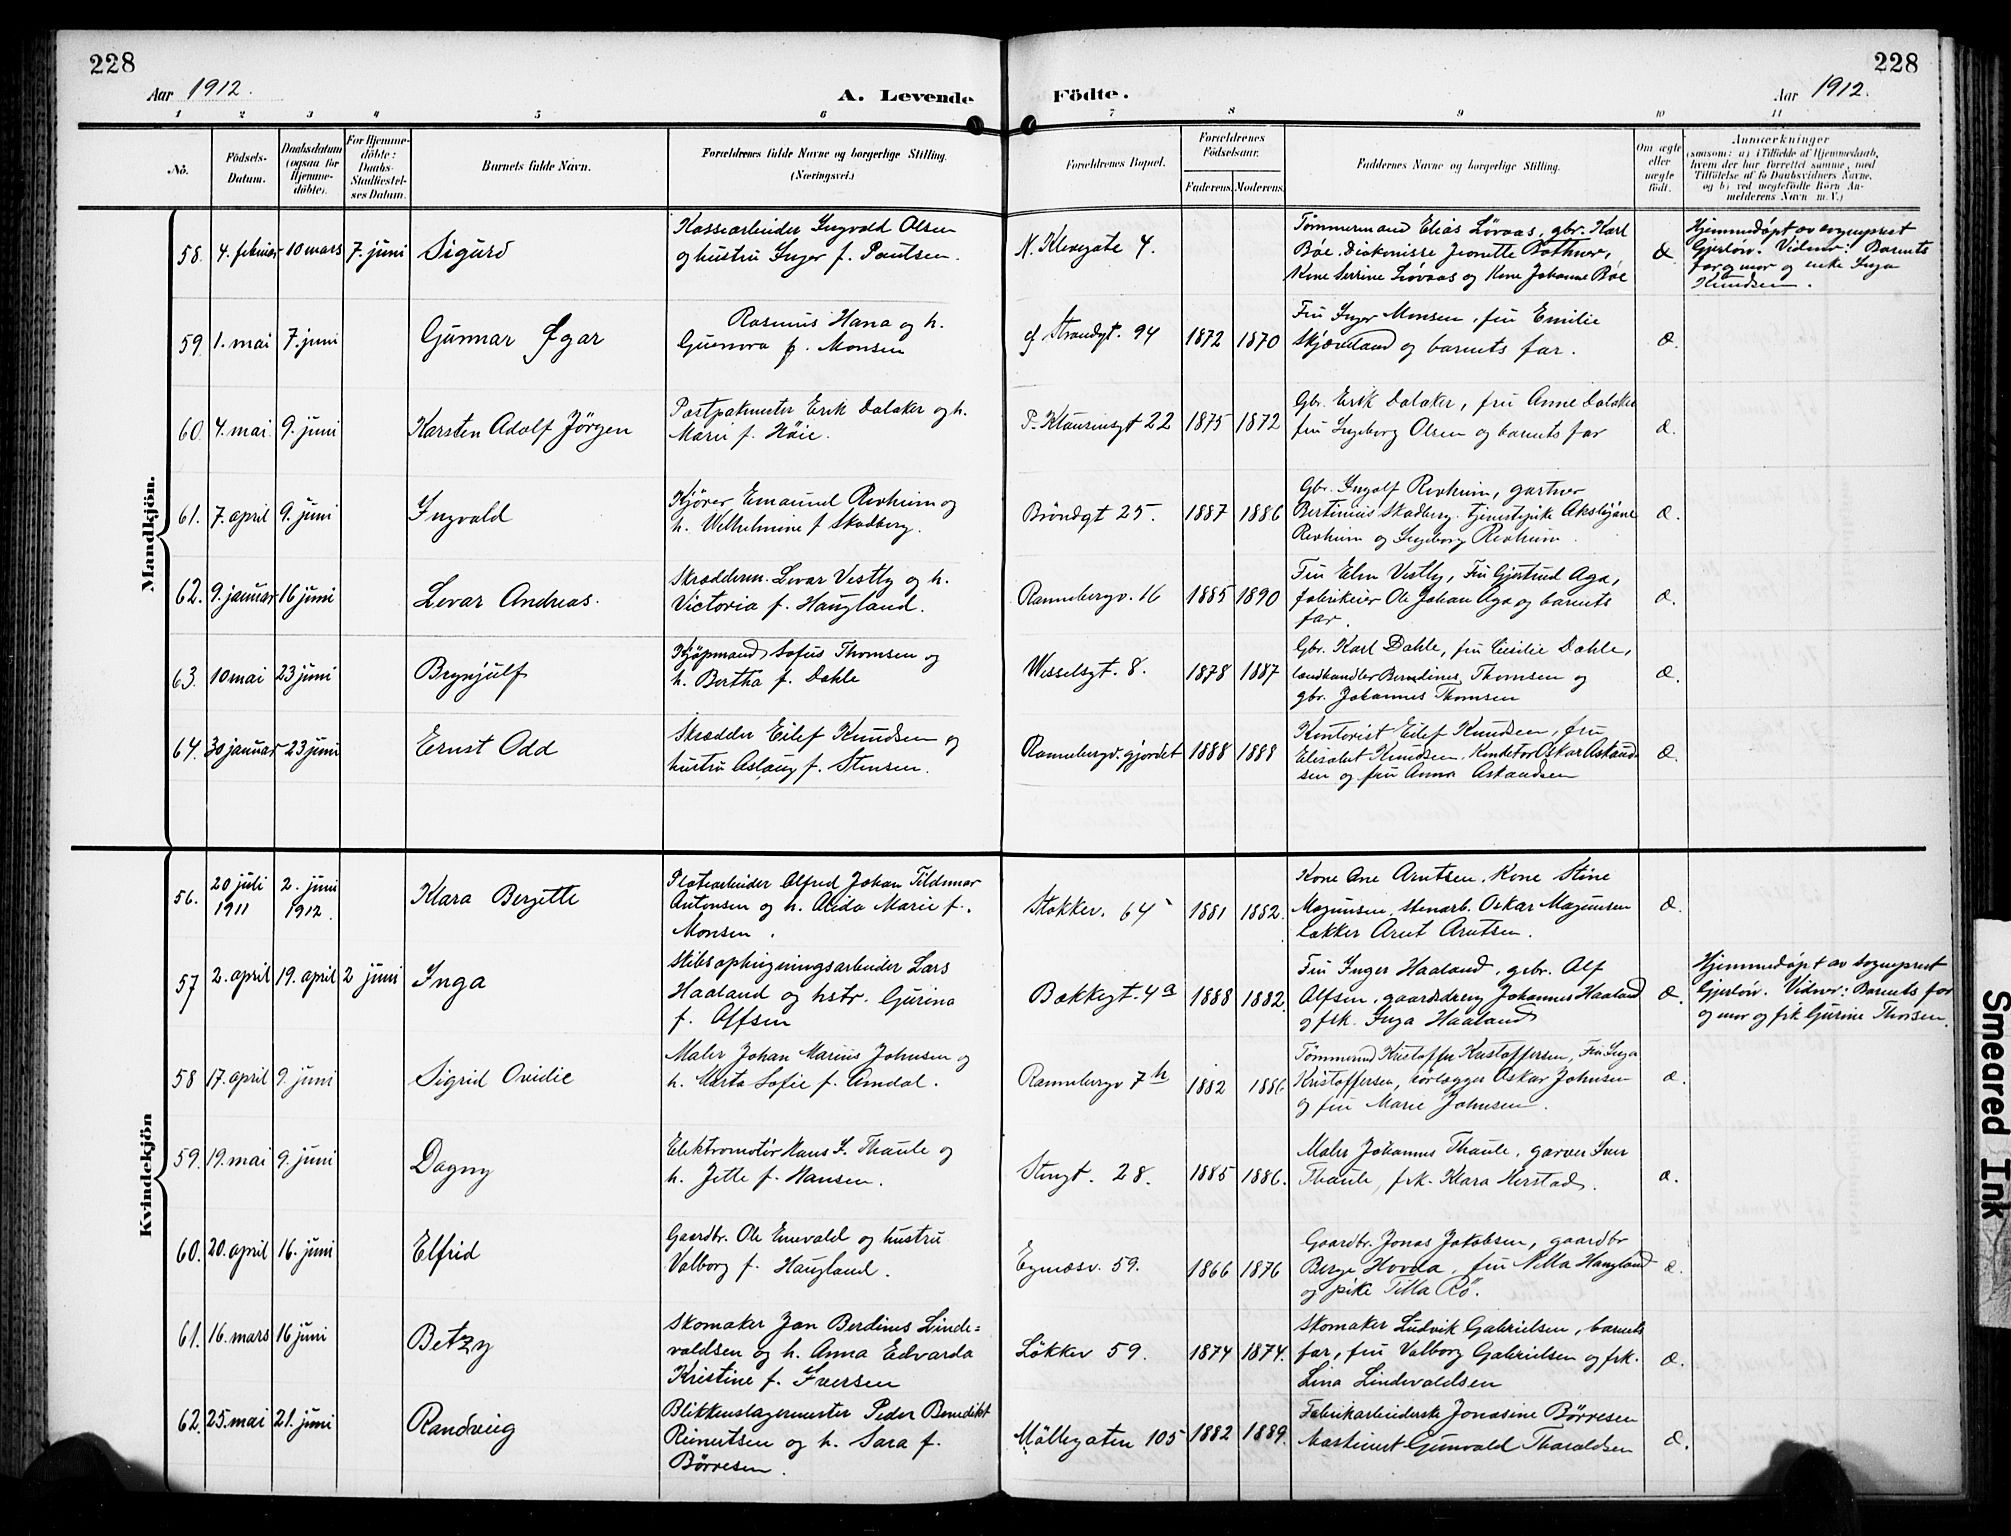 228
228
Aar 1912.
A. Levende Födte.
Aar 1912.
1 2 3 4 5 6 7 8 9 10 11
No.
Födsels-Datum.
Daabsdatum (ogsaa för Hjemmedöbte).
For Hjemmedöbte: Daabs-Stadfæstelses Datum.
Barnets fulde Navn.
Forældrenes fulde Navne og borgerlige Stilling. (Næringsvei.)
Forældrenes Bopæl.
Forældrenes Födselsaar.
Faderens. Moderens.
Faddernes Navne og borgerlige Stilling.
Om ægte eller uægte født.
Anmærkninger
(saasom: a) i Tilfælde af Hjemmedaab, hvem der har forrettet samme, med Tilföielse af to Daabsvidners Navne, og b) ved uægtefödte Börn Anmelderens Navn m. V.)
Mandkjön.
58. 4. februar 10 mars 7. juni Sigurd
Kassearbeider Ingvald Olsen
og hustru Inger f. Poulsen.
N. Klevegate 4.
Tømmermand Elias Løvaas, gbr. Karl
Bøe, Diakonisse Jeanette Bothner,
Kone Serine Løvaas og Kone Johanne Bøe
Hjemmedøpt av sogneprest
Gjerløw. Vidner: Barnets
far og mor og enke Inga
Knudsen.
59. 1. mai 7. juni Gunnar Egar
Rasmus Hana og h.
Gunnora f. Monsen
Strandgt. 94 1872 1870
Fru Inger Monsen, fru Emilie
Skjæveland og barnets far. æ.
60. 4. mai 9. juni Karsten Adolf Jörgen
Postpakmester Erik Dalaker og h.
Marie f. Høie.
P. Klausensgt 22 1875 1872
Gbr. Erik Dalaker, fru Anne Dalaker
fru Ingeborg Olsen og barnets far æ.
61. 7. april 9. juni Ingvald
Kjører Emanuel Revheim og
h. Wilhelmine f. Skadberg.
Bröndgt 25. 1887 1886
Gbr. Ingolf Revheim, gartner
Bertinius Skadberg, tjenestepike Akseliane
Revheim og Ingeborg Revheim. æ.
62. 9. januar 16 juni Levar Andreas.
Skrædderm. Levar Vestly og h.
Victoria f. Haugland.
Rannebergv. 16 1885 1890
Fru Elen Vestly, Fru Gjertrud Aga,
fabrikeier Ole Johan Aga og barnets
far. æ.
63. 10 mai 23 juni Brynjulf
Kjøpmand Sofus Thomsen og
h. Bertha f. Dahle
Wesselsgt. 8. 1878 1887
Gbr. Karl Dahle, fru Cecilie Dahle,
landhandler Berndines Thomsen og
gbr. Johannes Thomsen æ.
64. 30 januar 23 juni Ernst Odd
Skrædder Eilef Knudsen og
hustru Aslaug f. Stensen.
Rannebergv. gjordet 1888 1888
Kontorist Eilef Knudsen, fru
Elisabet Knudsen, Konditor Oskar Askaudsen
og fru Anna Askaudsen æ.
Kvindekjön
56. 20 juli 1911 2. juni 1912. Klara Bergette
Platearbeider Alfred Johan Tildemar
Antonsen og h. Alida Marie f.
Monsen.
Stokkev. 64 1881 1882.
Kone Ane Arntsen, Kone Stine
Magnusen, stenarb. Oskar Magnusen
løkker Arnt Arntsen. æ.
57 2. april 19. april 2 juni Inga
Skibsophugningsarbeider Lars
Haaland og hstr. Gurina
f. Alfsen
Bakkegt. 4a 1888 1882.
Fru Inger Haaland, gbr. Alf
Alfsen, gaardsdreng Johannes Haaland
og frk. Inga Haaland æ.
Hjemmedøpt av sogneprest
Gjerløw. Vidner: Barnets far
og mor og frk Gurine Thorsen.
58 17. april 9. juni Sigrid Ovidie
Maler Johan Marius Johnsen og
h. Marta Sofie f. Omdal.
Rannebergv 7h 1882 1886.
Tømmermd Kristoffer Kristoffersen, Fru Inga
Kristoffersen, rørlægger Oskar Johnsen
og fru Marie Johnsen. æ.
59. 19. mai 9. juni Dagny
Elektromotør Hans S. Thaule og
h. Jette f. Hansen.
Stengt. 28. 1885 1886.
Maler Johannes Thaule, garver Iver
Thaule, frk. Klara Herstad. æ.
60. 20. april 16. juni Elfrid
Gaardbr. Ole Enevald og hustru
Valborg f. Haugland.
Eganæsv. 59. 1866 1876
Gaardbr. Jonas Jakobsen, gaardbr
Berge Hovda, fru Nilla Haugland
og pike Tilla Rö. æ.
61. 16. mars 16 juni Betzy
Skomaker Jan Berdinus Linde=
valdsen og h. Anna Edvarda
Kristine f. Iversen
Løkkev 59. 1874 1874.
Skomaker Ludvik Gabrielsen, barnets
far, fru Valborg Gabrielsen og frk.
Lina Lindevaldsen æ.
62. 25. mai 21. juni Randveig
Blikkenslagermester Peder Benedikt
Reinertsen og h. Sara f.
Börresen.
Möllegaten 105 1882 1889.
Fabrikarbeiderske Jonasine Börresen
Gunvald Tharaldsen æ.
Smeared Ink